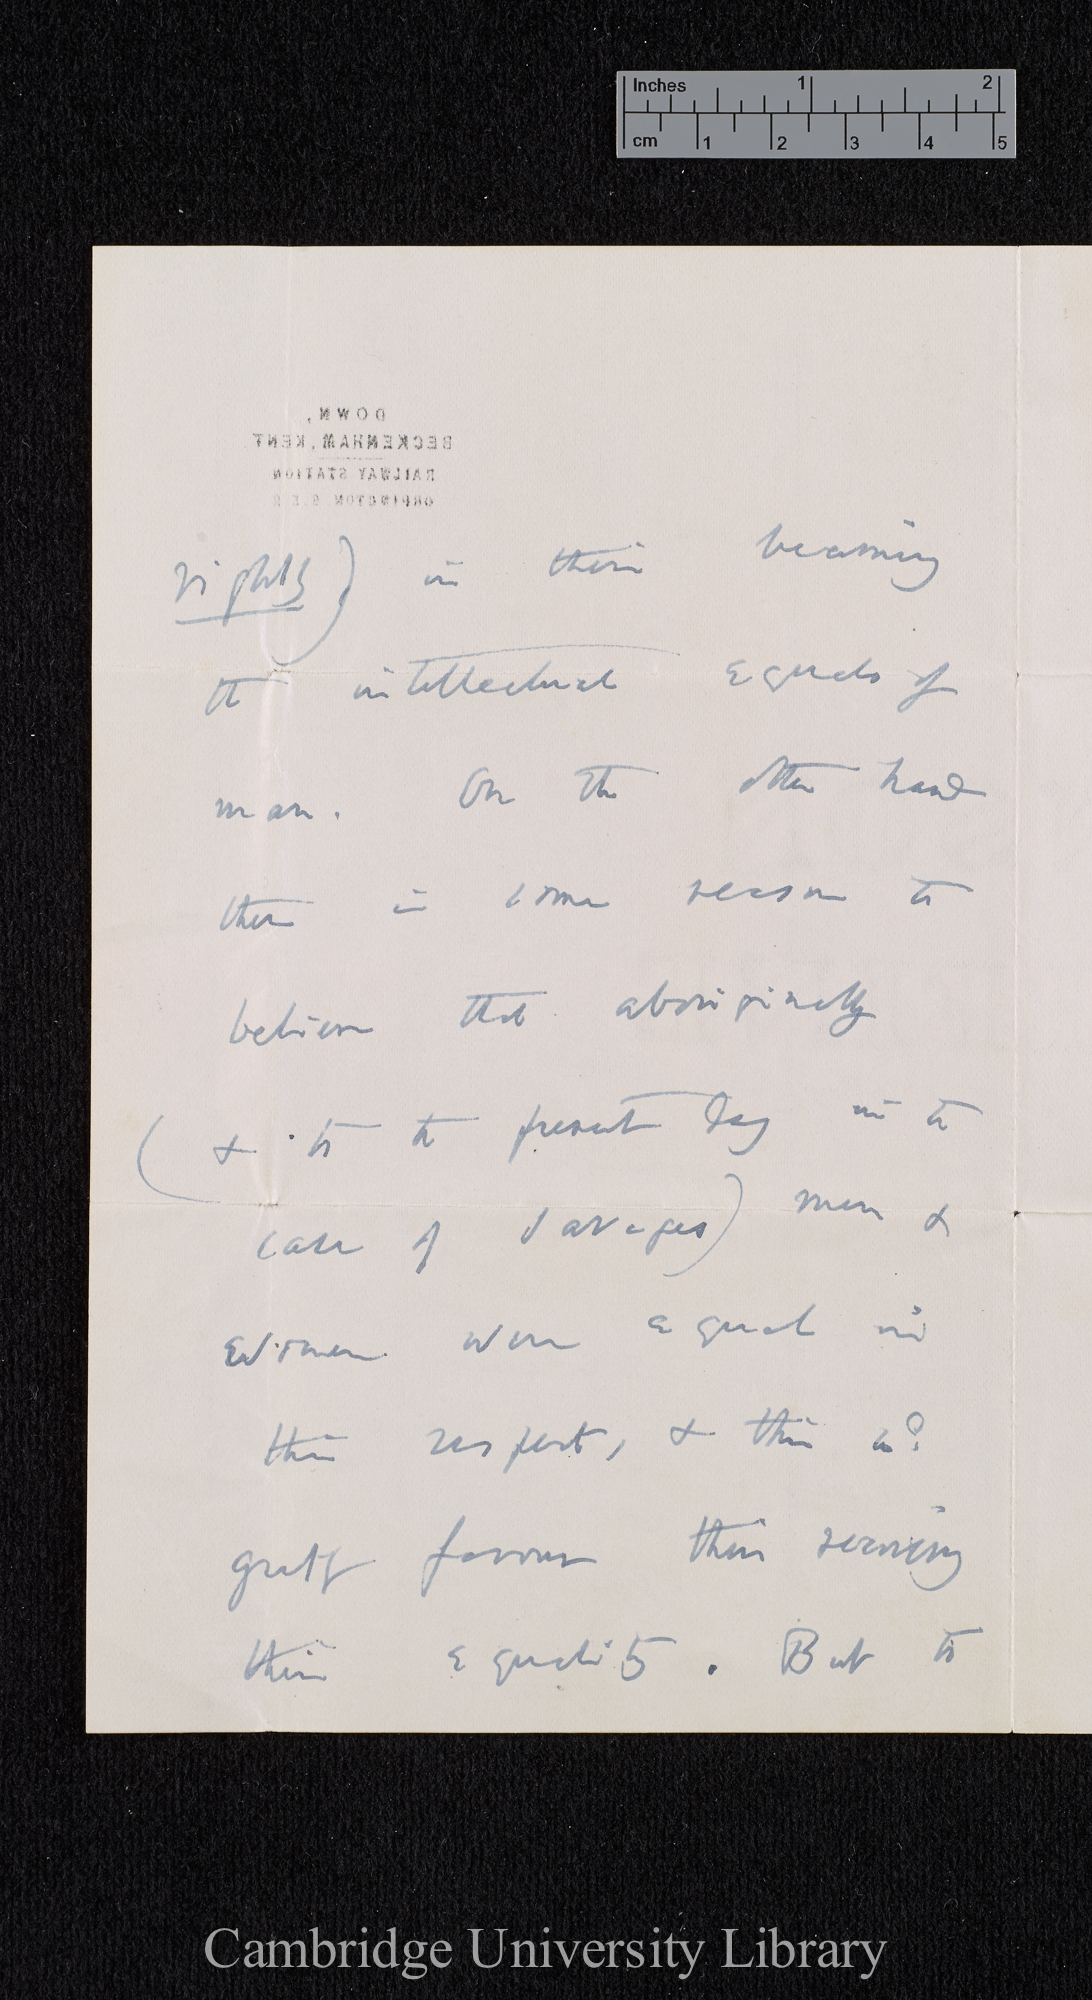 Inches 1 2
cm 1 2 3 4 5
DOWN,
BECKENHAM, KENT.
RAILWAY STATION
ORPINGTON. S.E.R.
rightly) in their becoming
the intellectual equals of
man. On the other hand
there is some reason to
believe that aboriginally
(& to the present day in the
case of savages) men &
women were equal in
this respect, & this wd
greatly favour their recovering
this equality. But to
Cambridge University Library